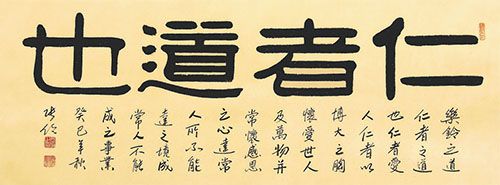 仁者道也
樂鈴之道
仁者之道
也仁者愛
人仁者以
博大之胸
懷愛世人
及萬物并
常懷感恩
之心達常
人所不能
達之境成
常人不能
成之事業
癸巳年秋